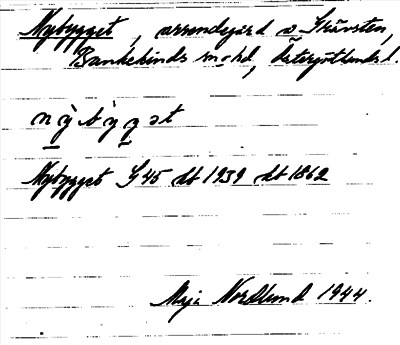 Nybygget, arrendegård u Skärsten,
Bankekinds sn o hd, Östergötlands l.
nỳbỳgət
Nybygget G 45 dt 1939 dt 1862
Maja Nordlund 1944.